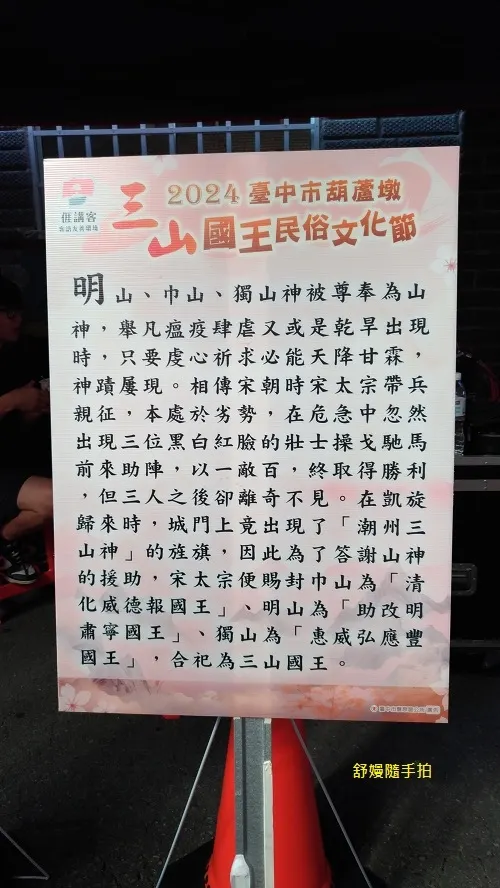 𠊎講客
客語友善環境
2024臺中市葫蘆墩
三山國王民俗文化節
明山、巾山、獨山神被尊奉為山
神，舉凡瘟疫肆虐又或是乾旱出現
時，只要虔心祈求必能天降甘霖，
神蹟屢現。相傳宋朝時宋太宗帶兵
親征，本處於劣勢，在危急中忽然
出現三位黑白紅臉的壯士操戈馳馬
前來助陣，以一敵百，終取得勝利
，但三人之後卻離奇不見。在凱旋
歸來時，城門上竟出現了「潮州三
山神」的旌旗，因此為了答謝山神
的援助，宋太宗便賜封巾山為「清
化威德報國王」、明山為「助改明
肅寧國王」、獨山為「惠威弘應豐
國王」，合祀為三山國王。
舒嫚隨手拍